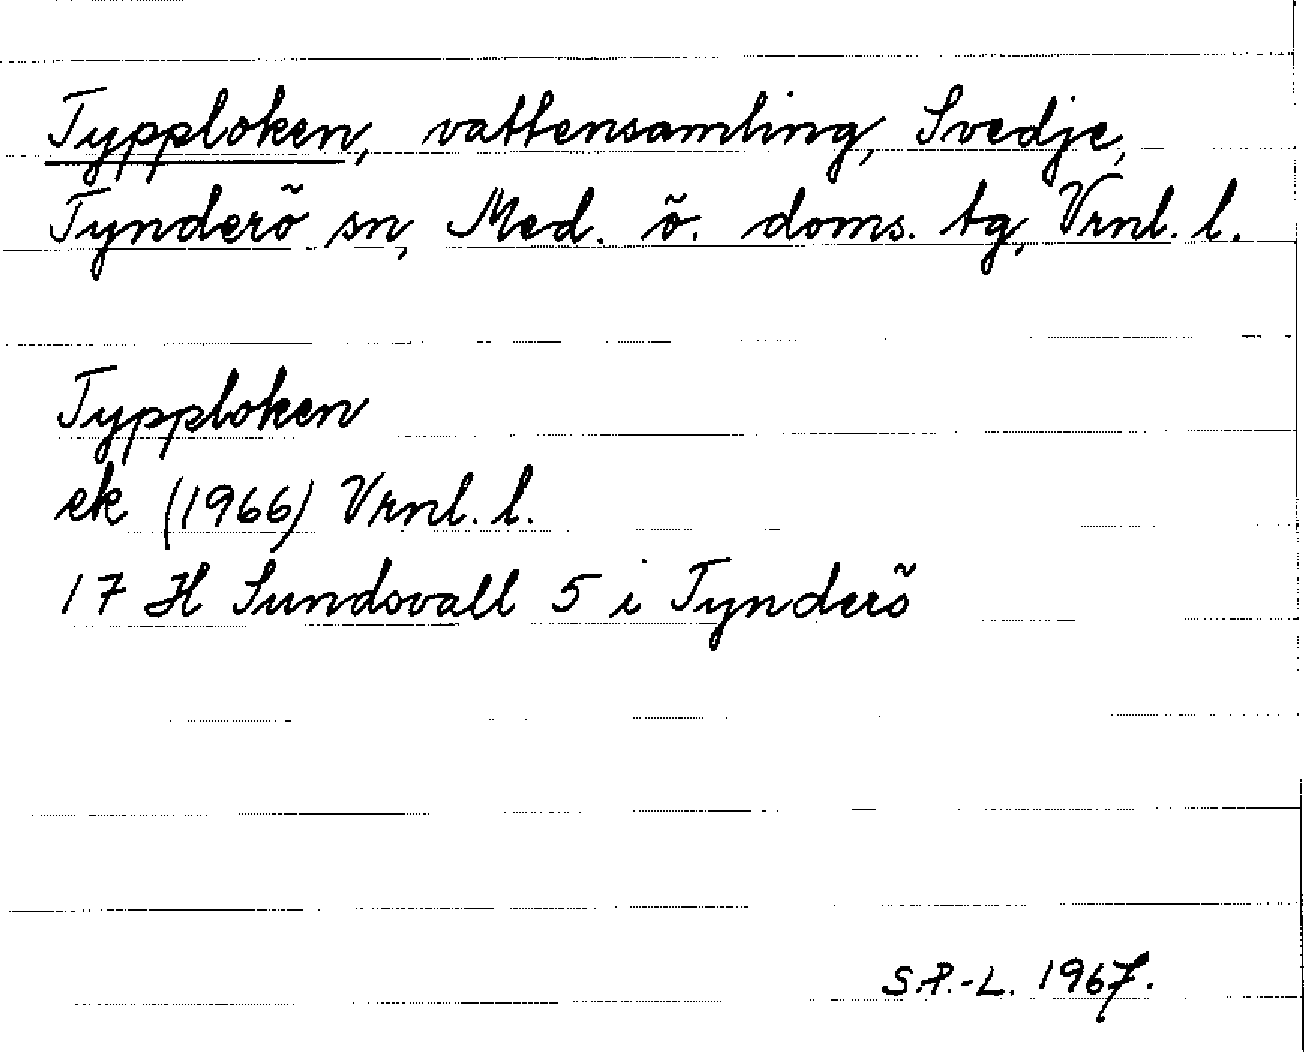 Typploken, vattensamling, Svedje,
Tynderö sn, Med. ö. doms. tg, Vrnl. l.
Typploken
ek (1966) Vrnl. l.
17 H Sundsvall 5 i Tynderö
S.P.-L. 1967.